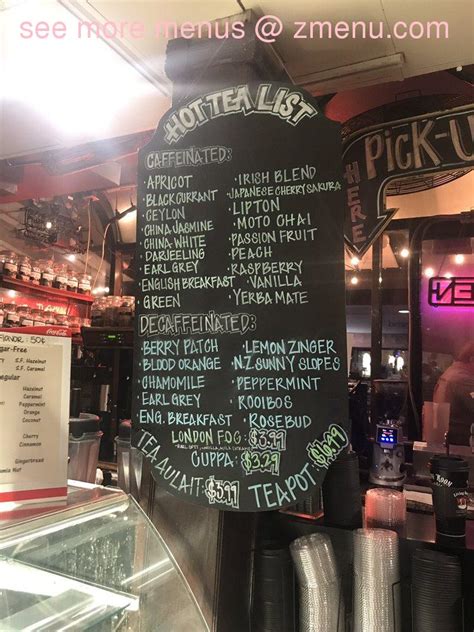 see more menus @ zmenu.com
HOT TEA LIST
CAFFEINATED:
·APRICOT
·BLACK CURRANT
·CEYLON
·CHINA JASMINE
·CHINA WHITE
·DARJEELING
·EARL GREY
·ENGLISH BREAKFAST
·GREEN
·IRISH BLEND
·JAPANESE CHERRY SAKURA
·LIPTON
·MOTO CHAI
·PASSION FRUIT
·PEACH
·RASPBERRY
·VANILLA
·YERBA MATE
DECAFFEINATED:
·BERRY PATCH
·BLOOD ORANGE
·CHAMOMILE
·EARL GREY
·ENG. BREAKFAST
·LEMON ZINGER
·N.Z. SUNNY SLOPES
·PEPPERMINT
·ROOIBOS
·ROSEBUD
LONDON FOG: $3.99
CUPPA: $3.29
TEA AU LAIT: $3.99
TEAPOT: $6.99
PICK-U
HERE
Coca-Cola
FLAVOR: 50¢
gar-Free
S.F. Hazelnut
S.F. Caramel
egular
Hazelnut
Caramel
Peppermint
Orange
Coconut
Cherry
Cinnamon
Gingerbread
mia Nut